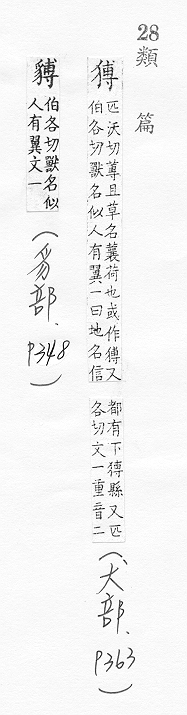 28
類篇
猼
匹沃切蓴且草名蘘荷也或作猼又
伯各切獸名似人有翼一曰地名信
都有下猼縣又匹
各切文一重音二
(犬部, P363)
伯各切獸名似
人有翼文一
(豸部, P348)